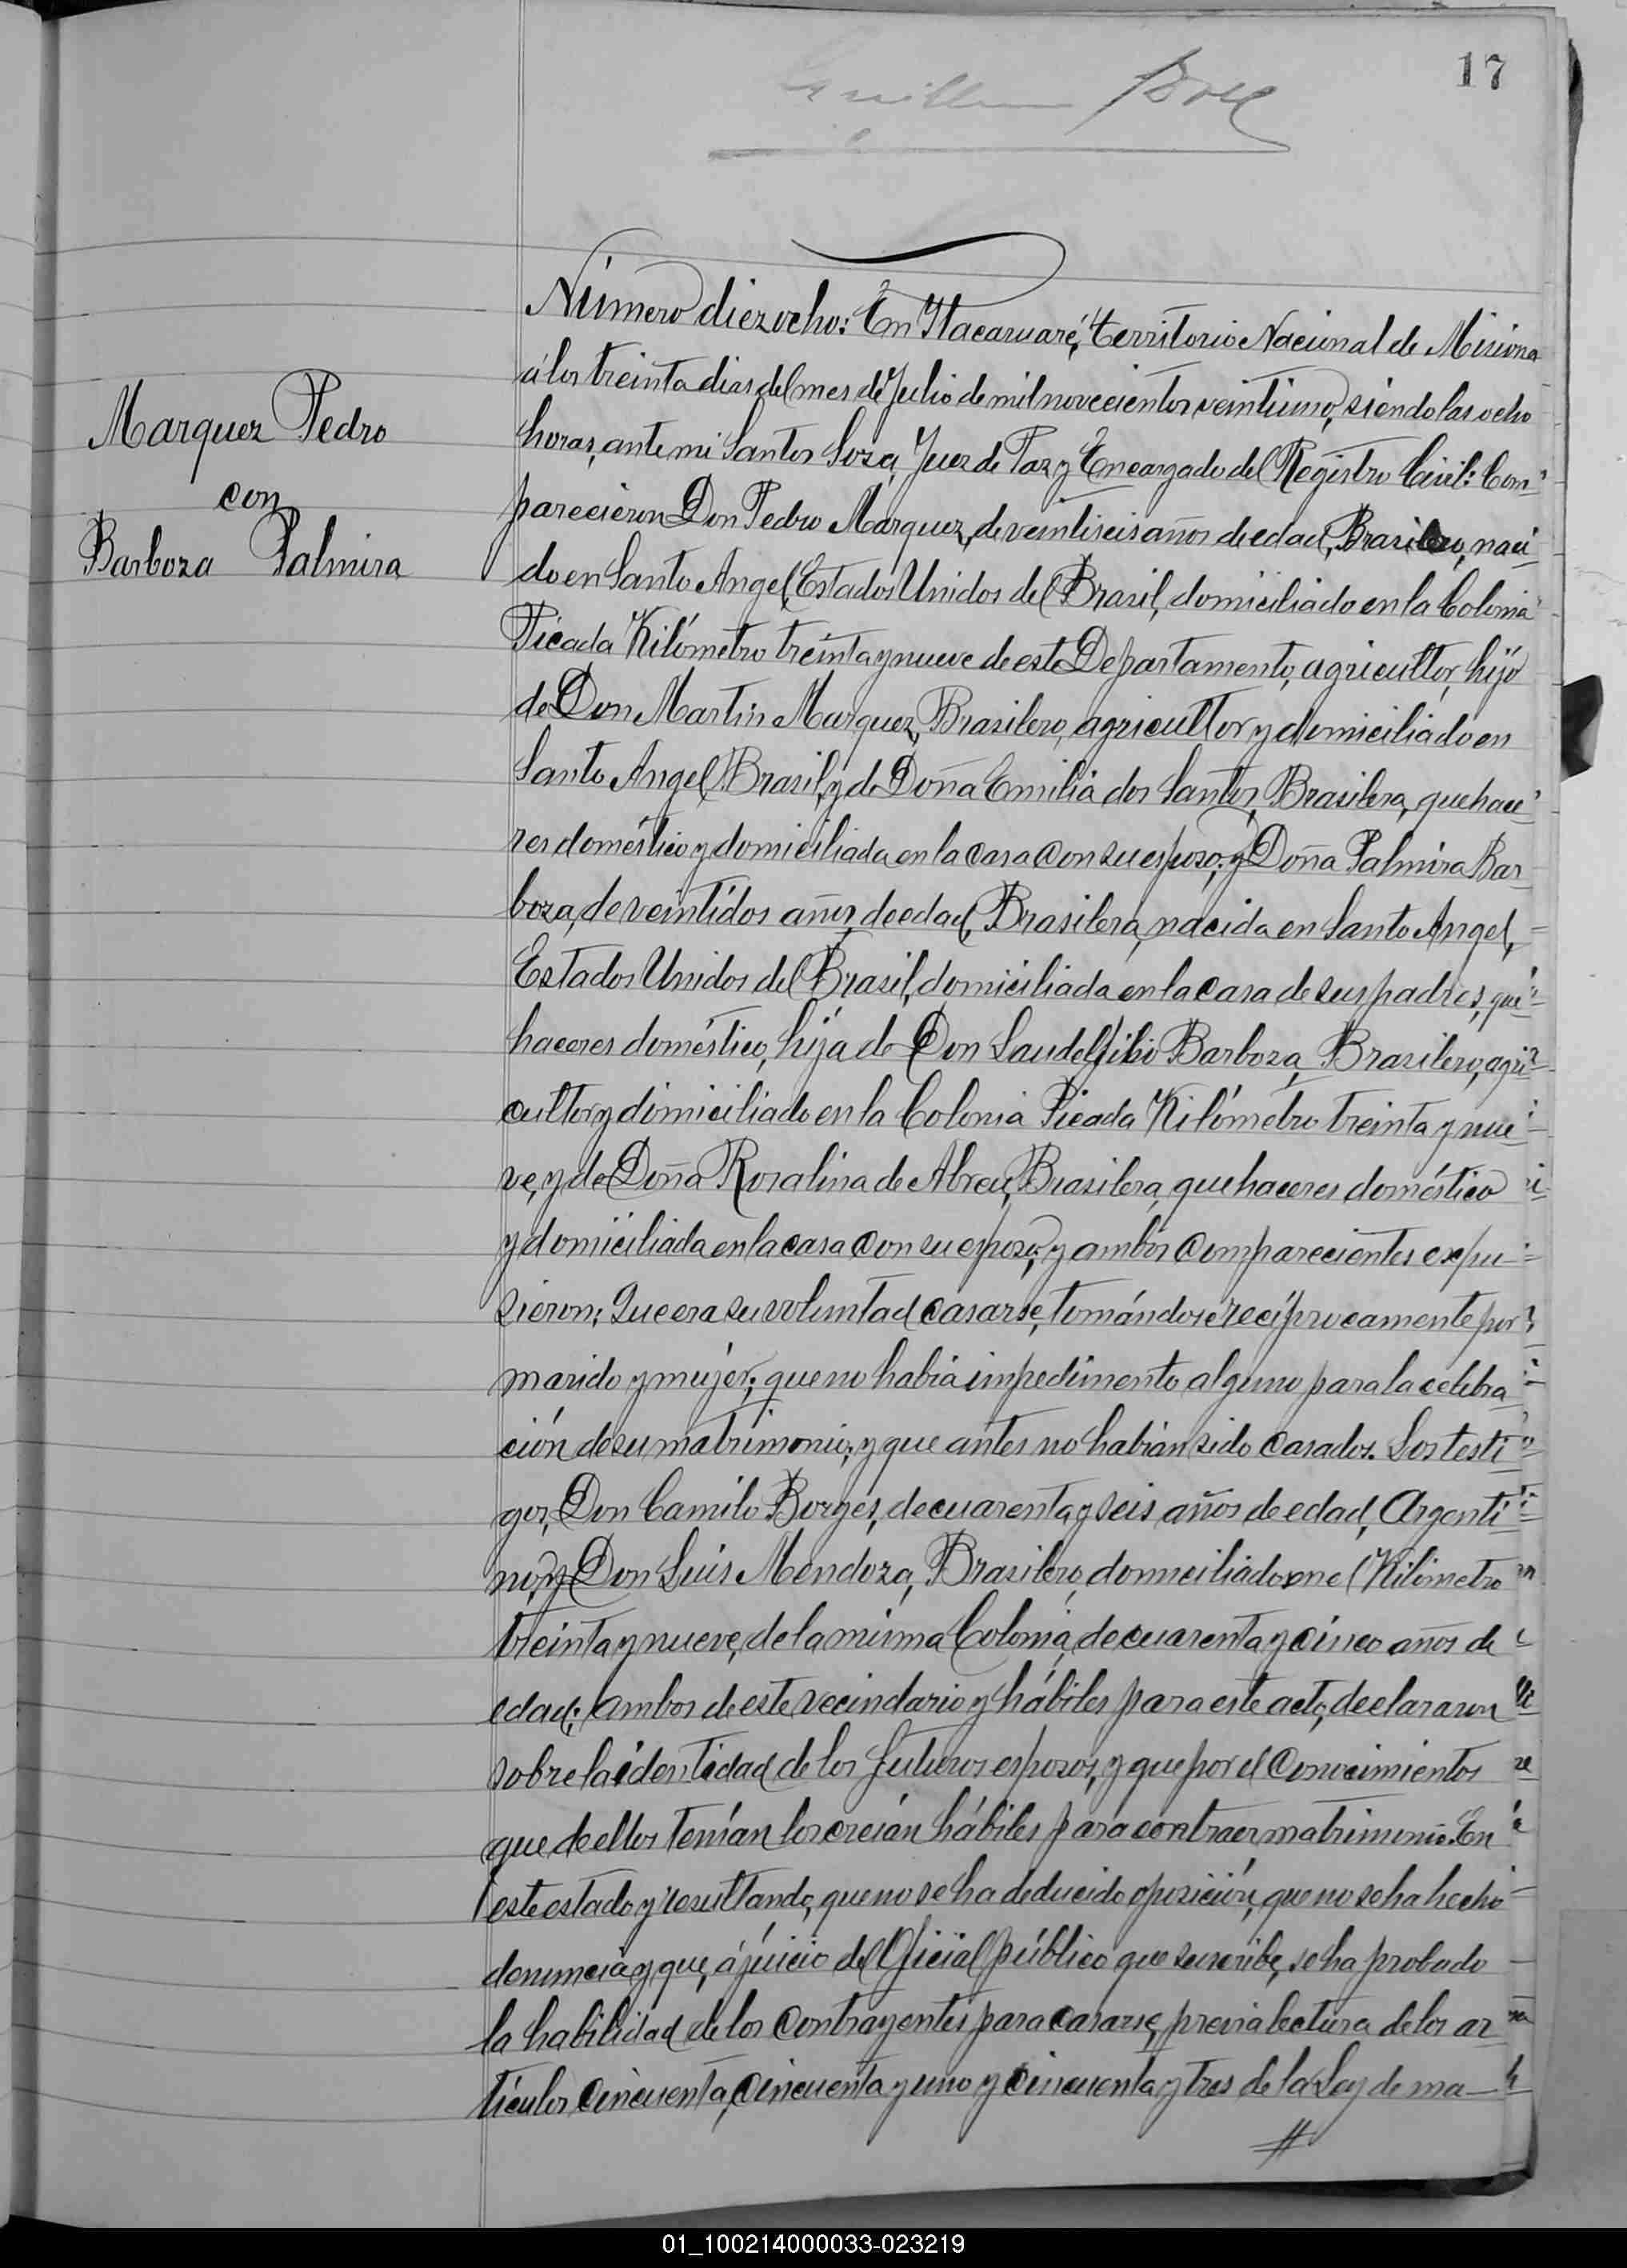 17
Número diezocho: En Itacaruaré, territorio Nacional de Misiones
á los treinta dias del mes de Julio de mil novecientos veintiuno, siendo las ocho
Marquez Pedro
horas, ante mi Santos Sosa, Juez de Paz y Encargado del Registro Civil: Com-
con
parecieron Don Pedro Marquez, de veintiseis años de edad, Brasilero, naci-
Barboza Palmira
do en Santo Angel, Estados Unidos del Brasil, domiciliado en la Colonia
Picada Kilómetro treinta y nueve de este Departamento, agricultor, hijo
de Don Martin Marquez, Brasilero, agricultor y domiciliado en
Santo Angel, Brasil, y de Doña Emilia dos Santos, Brasilera, quehace-
res doméstico y domiciliada en la casa con su esposo; y Doña Palmira Bar-
boza, de veintidos años de edad, Brasilera, nacida en Santo Angel,
Estados Unidos del Brasil, domiciliada en la casa de sus padres, que-
haceres doméstico, hija de Don Barboza, Brasilero, agri-
cultor y domiciliado en la Colonia Picada Kilómetro treinta y nue-
ve, y de Doña Rosalina de Abreu, Brasilera, quehaceres doméstico
y domiciliada en la casa con su esposo; y ambos comparecientes expu-
sieron: Que era su voluntad casarse, tomándose recíprocamente por
marido y mujer; que no habia impedimento alguno para la celebra-
ción de su matrimonio; y que antes no habian sido casados. Los testi-
gos, Don Camilo Borges, de cuarenta y seis años de edad, Argenti-
no, y Don Luis Mendoza, Brasilero, domiciliado en el Kilómetro
treinta y nueve, de la misma Colonia, de cuarenta y cinco años de
edad; ambos de este vecindario y hábiles para este acto, declararon
sobre la identidad de los futuros esposos, y que por el conocimientos
que de ellos tenían los creían hábiles para contraer matrimonio. En
este estado y resultando, que no se ha deducido oposición, que no se ha hecho
denuncia y que, á juicio del Oficial público que suscribe, se ha probado
la habilidad de los contrayentes para casarse, previa lectura de los ar-
tículos cincuenta, cincuenta y uno y cincuenta y tres de la Ley de ma-
//
01_100214000033-023219